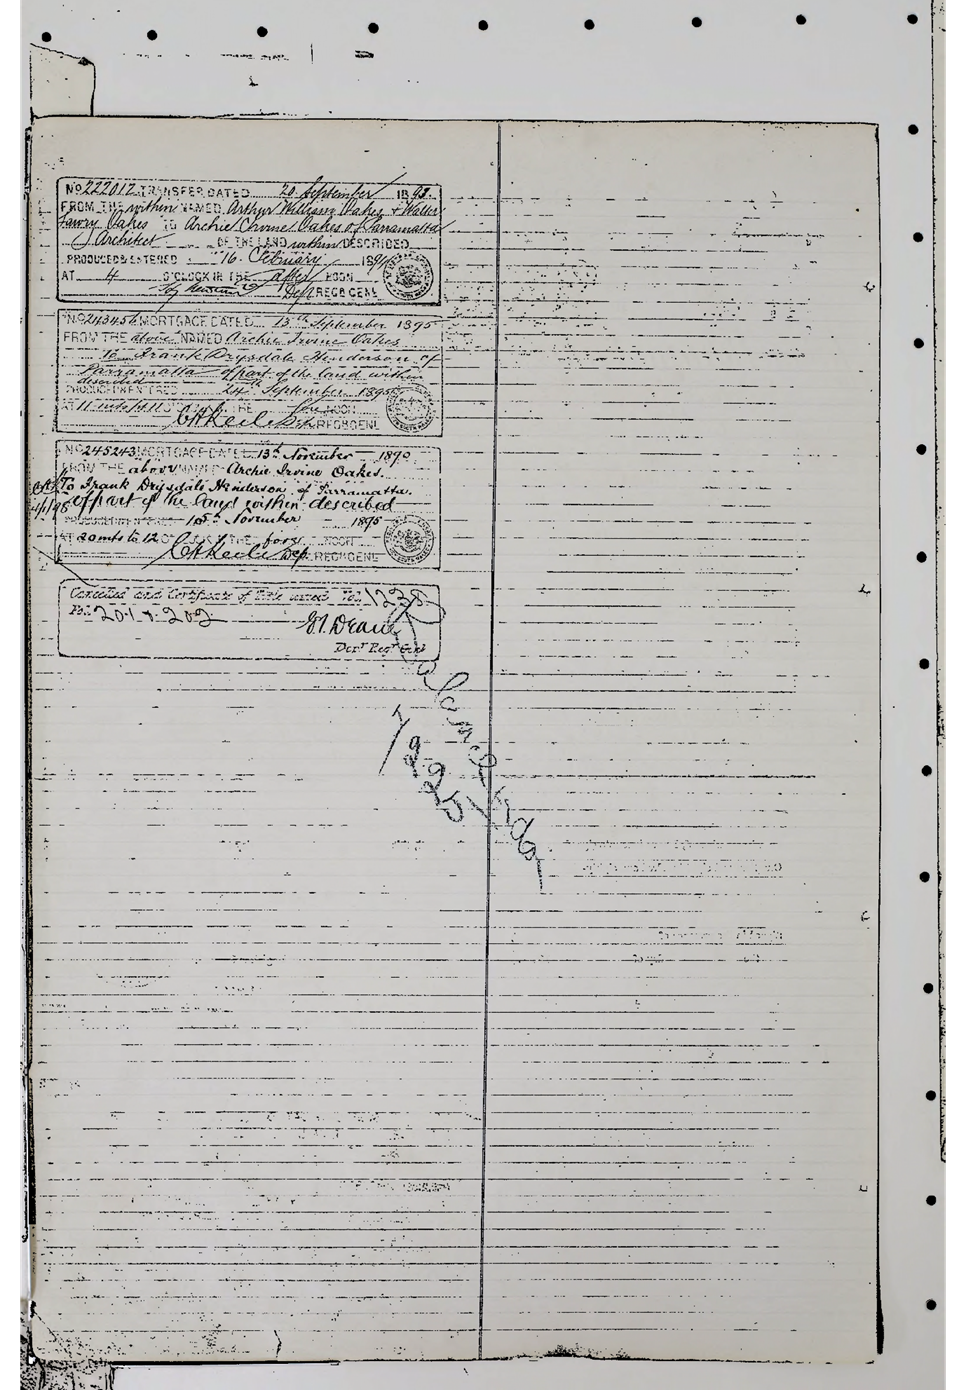 No 222012 TRANSFER DATED 20 September 1893.
FROM THE within NAMED Arthur William Oakes & Walter
Lawry Oakes TO Archie Irvine Oakes of Parramatta
Architect OF THE LAND within DESCRIBED
PRODUCED & ENTERED 16 February 1894
AT 4 O'CLOCK IN THE after NOON
DEP REG GENL
No 243456 MORTGAGE DATED 13th September 1895
FROM THE above NAMED Archie Irvine Oakes
To Frank Drysdale Henderson of
Parramatta of part of the land within
described
PRODUCED & ENTERED 24th September 1895
AT 11 O'CLOCK IN THE fore NOON
DEP REG GENL
No 245243 MORTGAGE DATED 13th November 1890
FROM THE above NAMED Archie Irvine Oakes.
To Frank Drysdale Henderson of Parramatta.
of part of the land within described
PRODUCED & ENTERED 15th November 1895
AT 20 mts to 12 O'CLOCK IN THE fore NOON
Dep. REG GENL
Cancelled and Certificate of Title issued Vol. 1225
Fol. 201 & 202
Dept Regr Genl
1225